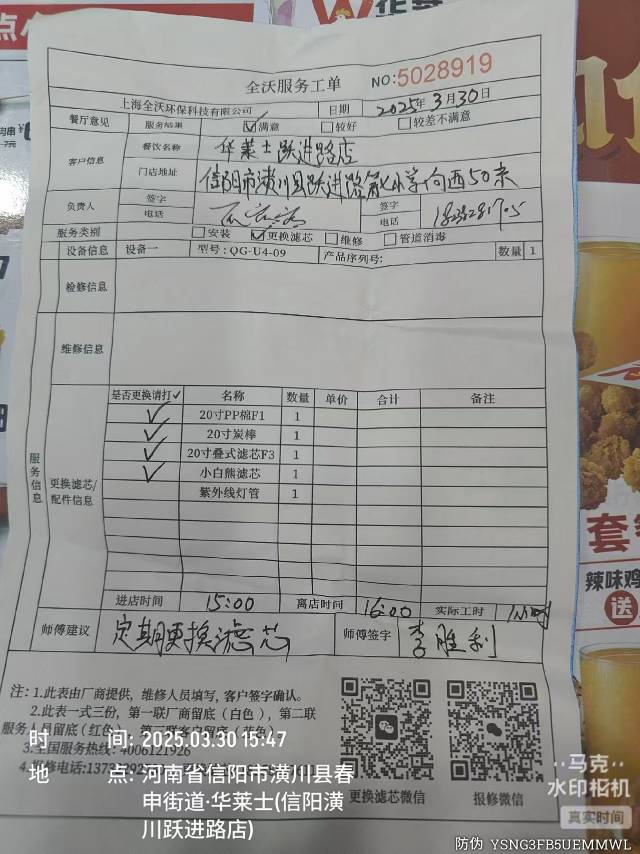 全沃服务工单
NO:5028919
上海全沃环保科技有限公司 日期 2025年3月30日
餐厅意见 服务结果 ☑满意 □较好 □较差不满意
客户信息 餐饮名称 华莱士跃进路店
门店地址 信阳市潢川县跃进路第七小学向西50米
负责人 签字 签字
电话 电话
服务类别 □安装 ☑更换滤芯 □维修 □管道消毒
设备信息 设备一 型号:QG-U4-09 产品序列号: 数量 1
检修信息
维修信息
服务信息
更换滤芯/配件信息
是否更换请打✓ 名称 数量 单价 合计 备注
✓ 20寸PP棉F1 1
✓ 20寸炭棒 1
✓ 20寸叠式滤芯F3 1
✓ 小白熊滤芯 1
紫外线灯管 1
进店时间 15:00 离店时间 16:00 实际工时 1小时
师傅建议 定期更换滤芯 师傅签字 李胜利
注:1.此表由厂商提供,维修人员填写,客户签字确认。
2.此表一式三份,第一联厂商留底(白色),第二联
服务人员留底(红色),第三联客户留底(黄色)
3.全国服务热线:4006121926
4.报修电话:
更换滤芯微信 报修微信
时 间:2025.03.30 15:47
地 点:河南省信阳市潢川县春
申街道·华莱士(信阳潢
川跃进路店)
套餐
辣味鸡
送
马克
水印相机
真实时间
防伪 YSNG3FB5UEMMWL